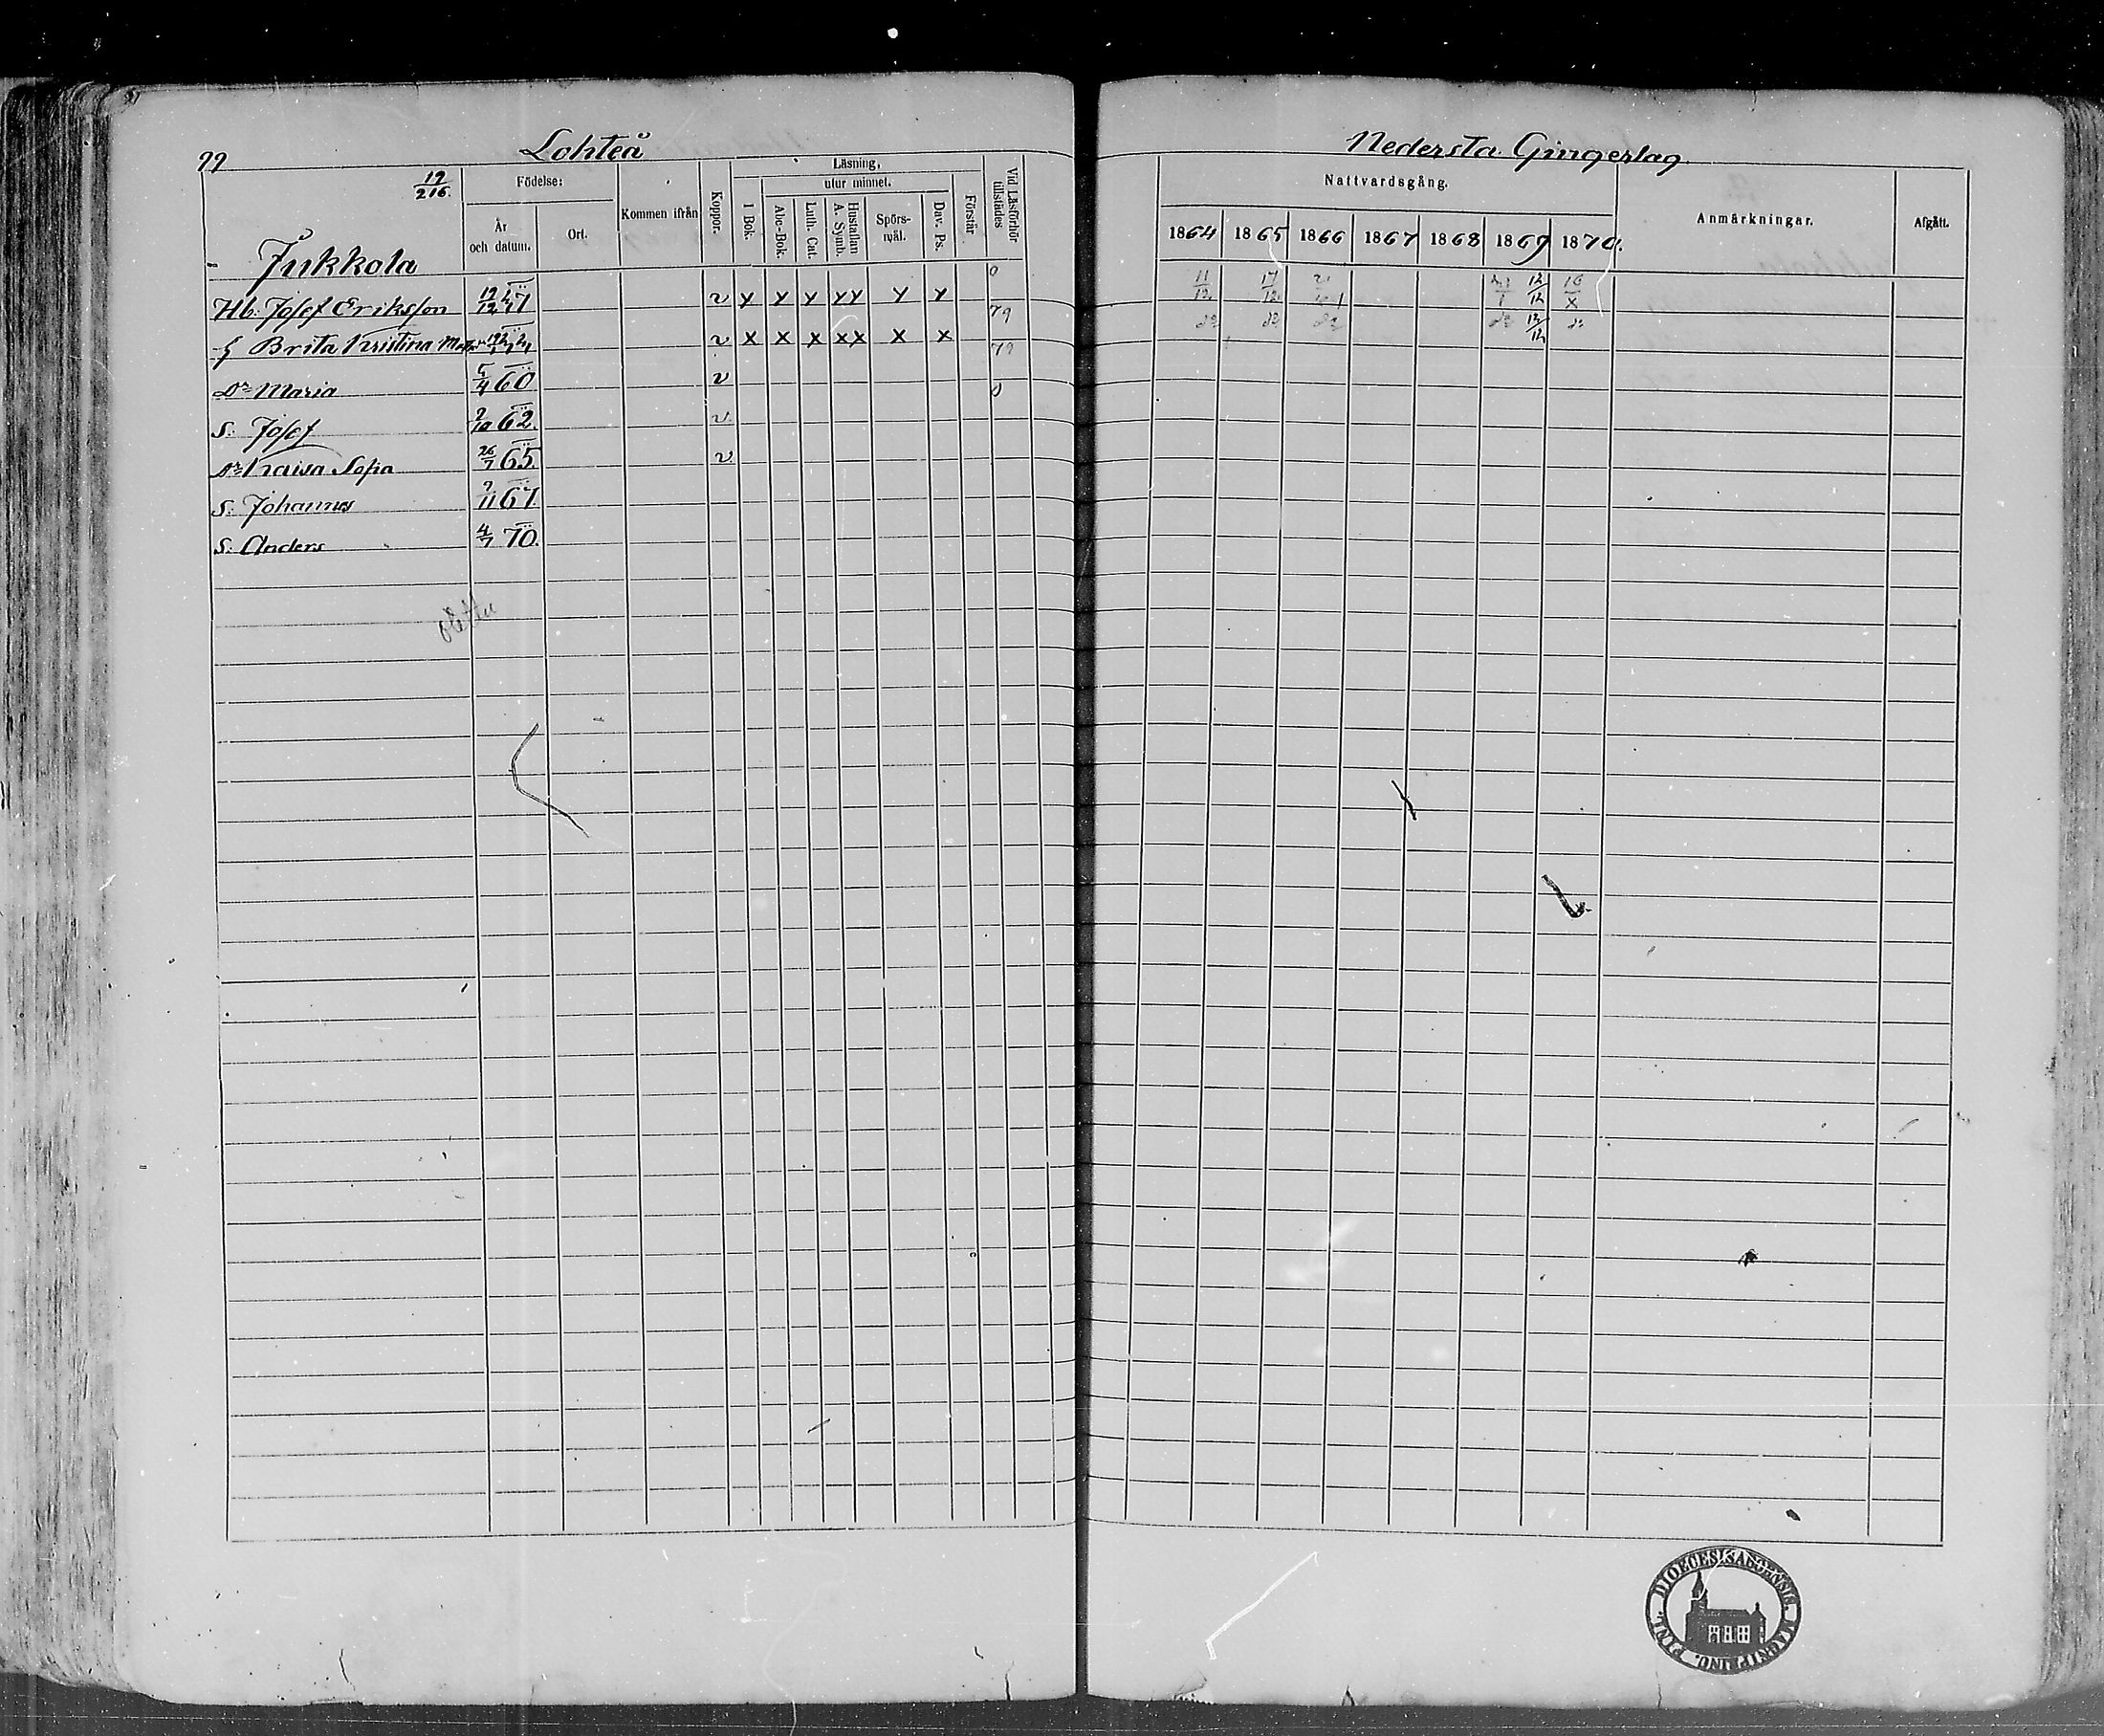 99 Lohteå
19/216.
Födelse:
År och datum.
Ort.
Kommen ifrån
Koppor.
Läsning,
utur minnet.
I Bok.
Abc-Bok.
Luth. Cat.
Hustaflan A. Symb.
Spörs-mål.
Dav. Ps.
Förstår
Vid Läsförhör tillstädes
Jukkola
Hb: Josef Eriksson v x x x xx x x 0 79
h Brita Kristina v x x x xx x x 79
Dr Maria 5/4 60 v 0
S: Josef 2/10 62. v
Dr Kaisa Sofia 26/7 65. v
S: Johannes 7/11 67.
S: Anders 4/7 70.
Nedersta Gingerlag
Nattvardsgång.
1864 1865 1866 1867 1868 1869 1870.
Anmärkningar.
Afgått.
11/12 17/12 12/12 16/X
do do do do 12/12 do